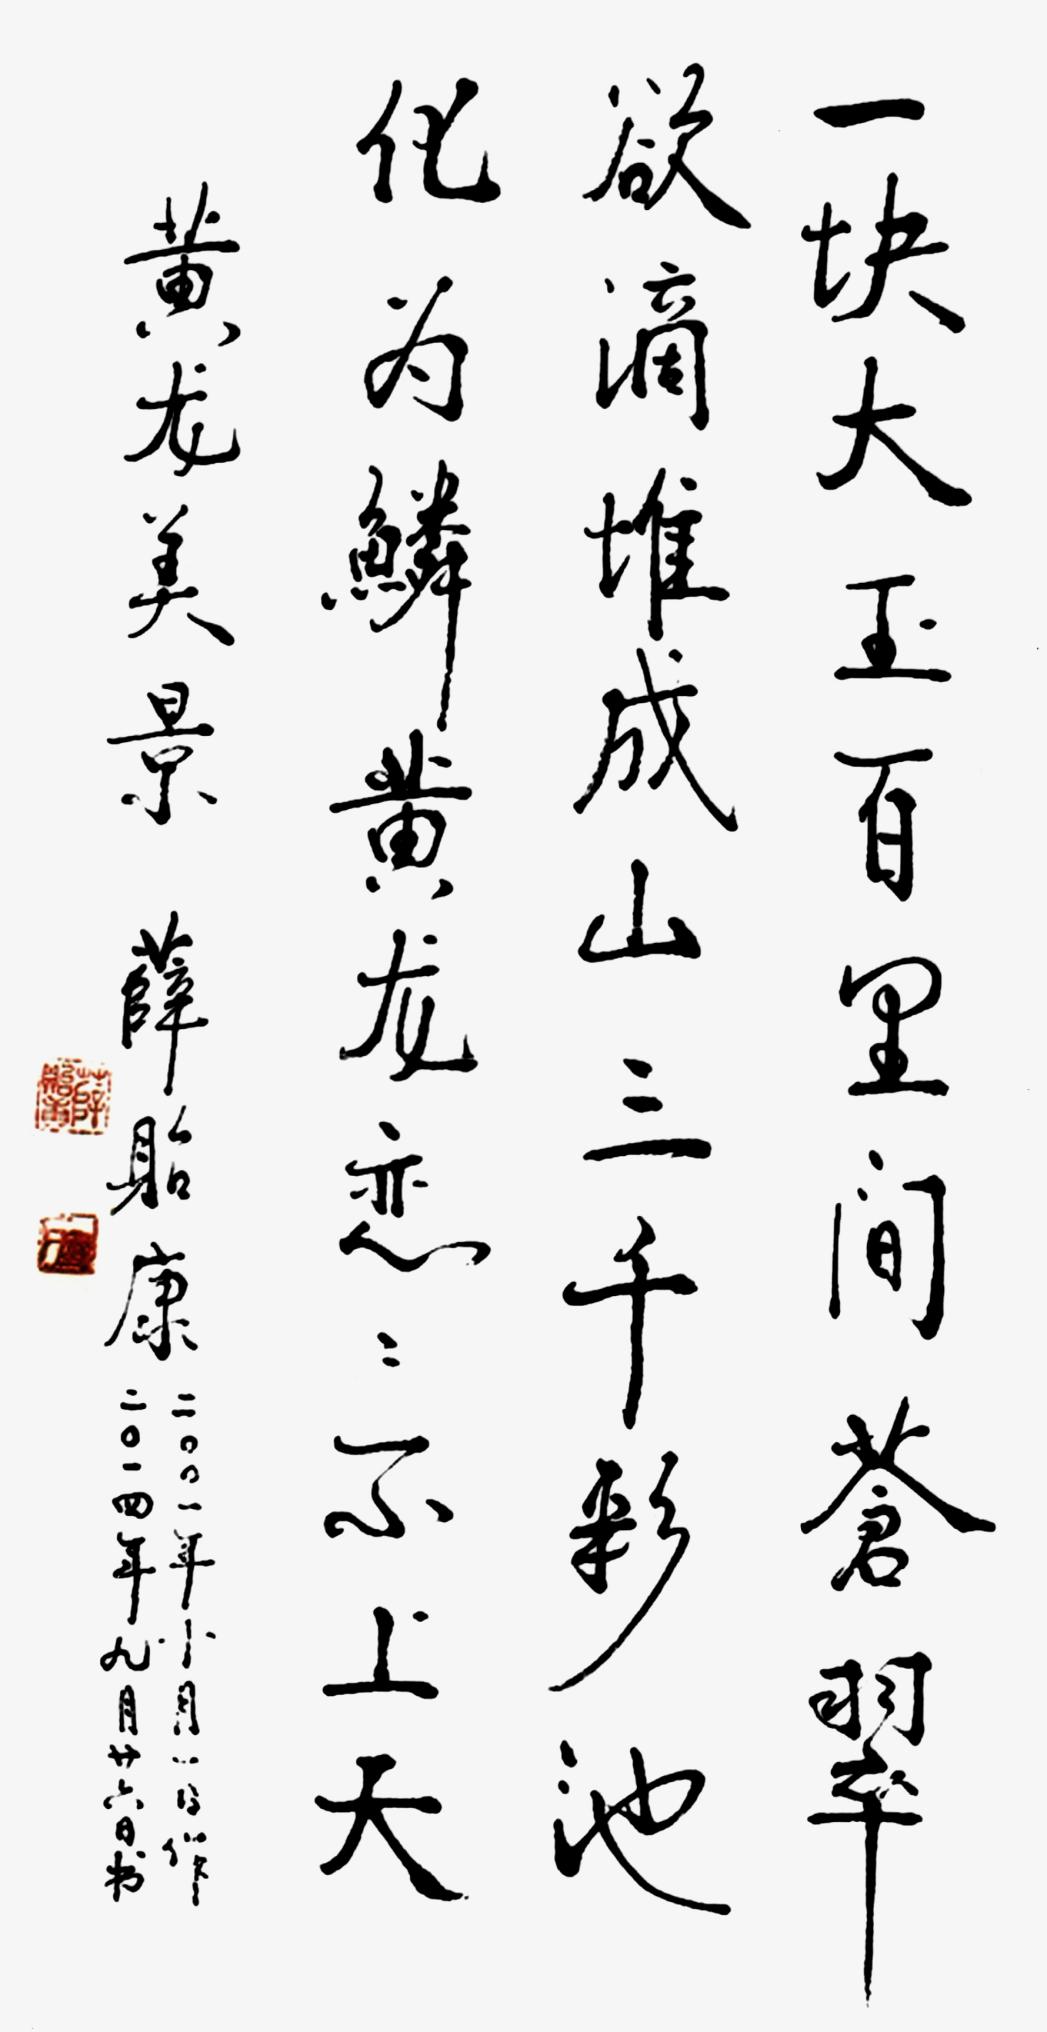 一块大玉百里间苍翠
欲滴堆成山三千彩池
化为鳞黄龙恋〻不上天
黄龙美景 薛贻康
二〇〇一年十月八日作
二〇一四年九月廿六日书
薛贻康